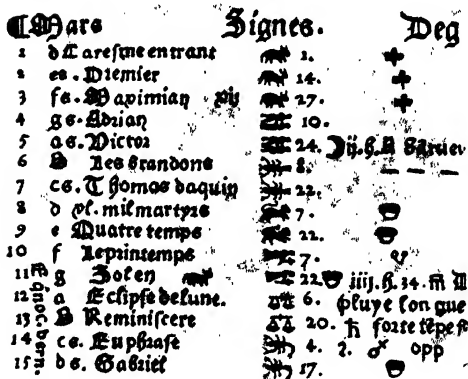 Mars Signes. Deg
1 d Caresme entrant 1.
2 es. Premier 14.
3 fs. Maximian xij 27.
4 gs. Adrian 10.
5 as. Victor 24. ij. h.
6 b Les brandons 8.
7 cs. Thomas daquin 22.
8 d xl. mil martyrs 7.
9 e Quatre temps 22.
10 f Le printemps 7. ☋
11 g Solen 22 iiij. h. 34. m
12 a Eclipse de lune. 6. pluye lon que
13 b Reminiscere 20. ♄ forte tẽpe
14 cs. Euphrase 4. ♂ opp
15 ds. Gabriel 17.
Equinoc. vern.